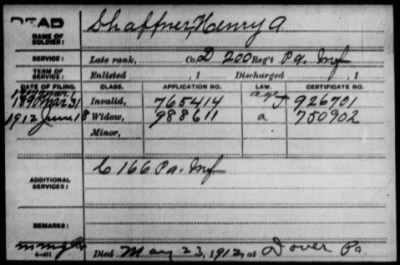 DEAD
NAME OF SOLDIER: Shaffner, Henry A.
SERVICE: Late rank, Co. D 200 Reg't Pa. Inf
TERM OF SERVICE: Enlisted , 1 Discharged , 1
DATE OF FILING. CLASS. APPLICATION NO. LAW. CERTIFICATE NO.
1890 Mar 31 Invalid, 765414 926701
1912 June 18 Widow, 988611 a 750902
Minor,
ADDITIONAL SERVICES: C 166 Pa. Inf
REMARKS:
Died May 23, 1912, at Dover Pa.